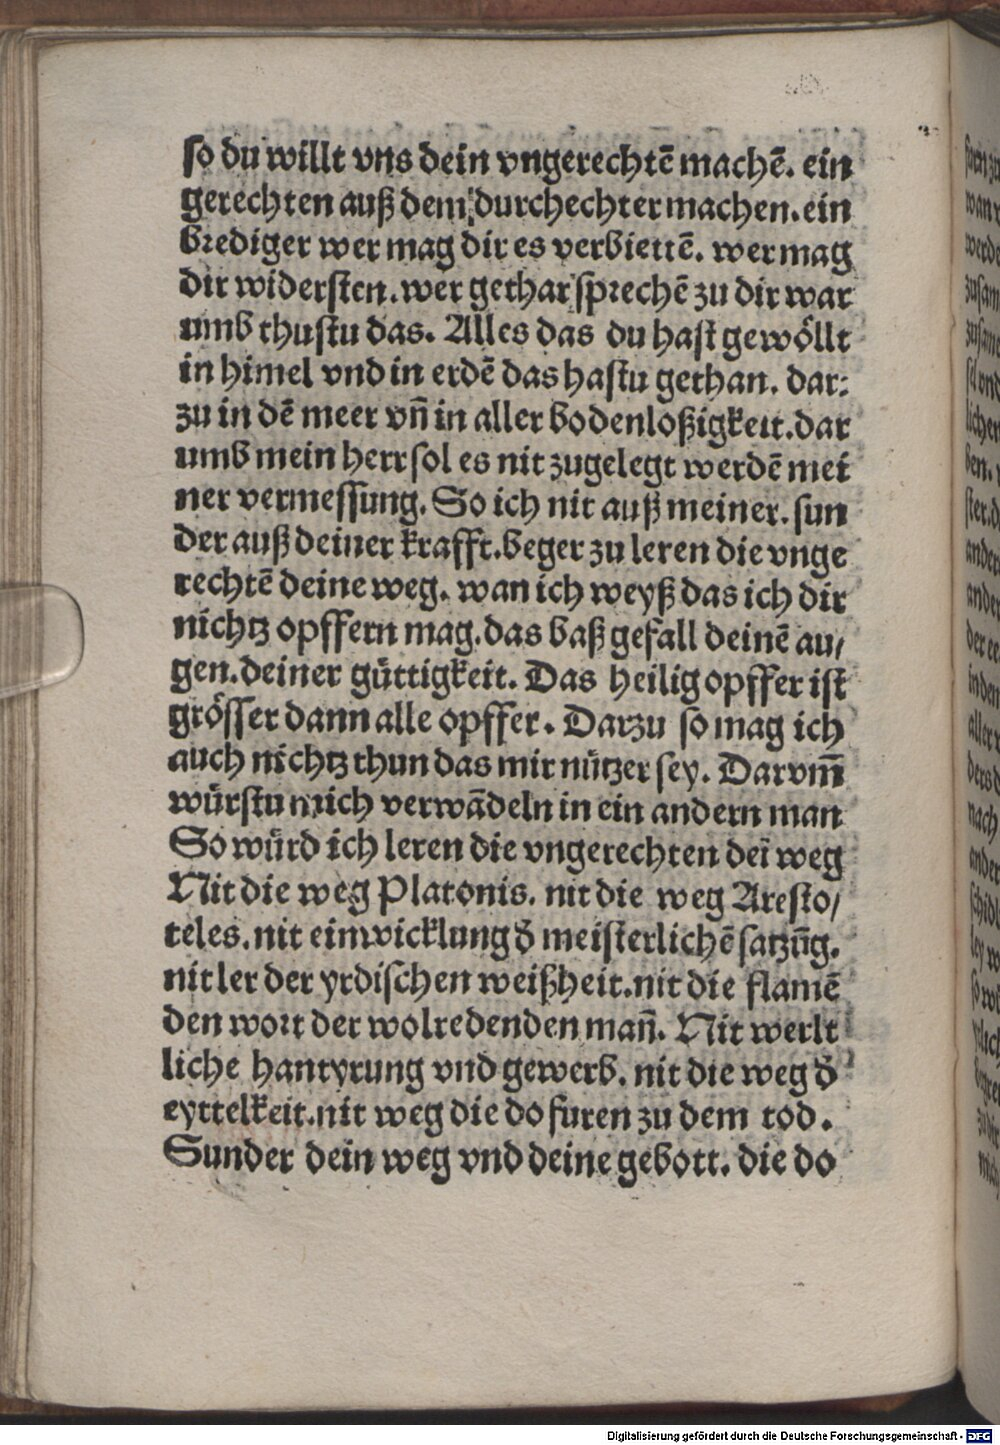 so du willt vns dein vngerechtē machē. ein
gerechten auß dem durchechter machen. ein
brediger wer mag dir es verbiettē. wer mag
dir widersten. wer gethar sprechē zu dir war
umb thustu das. Alles das du hast gewöllt
in himel vnd in erdē das hastu gethan. dar:
zu in dē meer vñ in aller bodenloßigkeit. dar
umb mein herr sol es nit zugelegt werdē mei
ner vermessung. So ich nit auß meiner. sun
der auß deiner krafft. beger zu leren die vnge
rechtē deine weg. wan ich weyß das ich dir
nichtz opffern mag. das baß gefall deinē au/
gen. deiner güttigkeit. Das heilig opffer ist
grösser dann alle opffer. Darzu so mag ich
auch nichtz thun das mir nützer sey. Darvm̄
würstu mich verwādeln in ein andern man
So würd ich leren die vngerechten deī weg
Nit die weg Platonis. nit die weg Aresto/
teles. nit einwicklung d̄ meisterlichē satzūg.
nit ler der yrdischen weißheit. nit die flamē
den wort der wolredenden mañ. Nit werlt
liche hantyrung vnd gewerb. nit die weg d̄
eyttelkeit. nit weg die do furen zu dem tod.
Sunder dein weg vnd deine gebott. die do
Digitalisierung gefördert durch die Deutsche Forschungsgemeinschaft - DFG